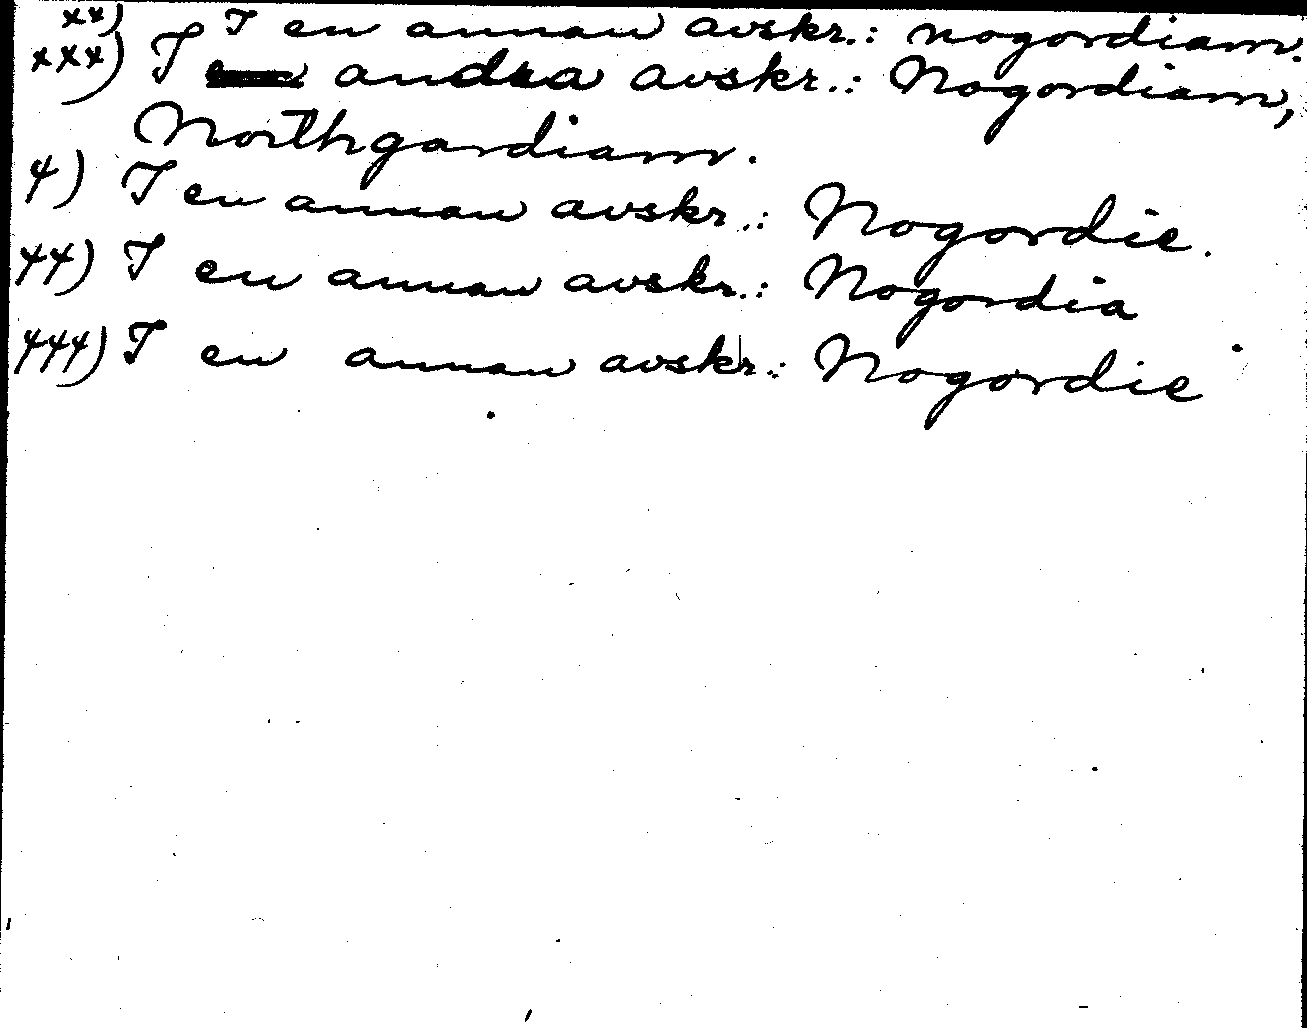 xx) I en annan avskr.: nogordiam.
xxx) I andra avskr.: Nogordiam,
Northgardiam.
4) I en annan avskr.: Nogordie.
44) I en annan avskr.: Nogordia
444) I en annan avskr.: Nogordie